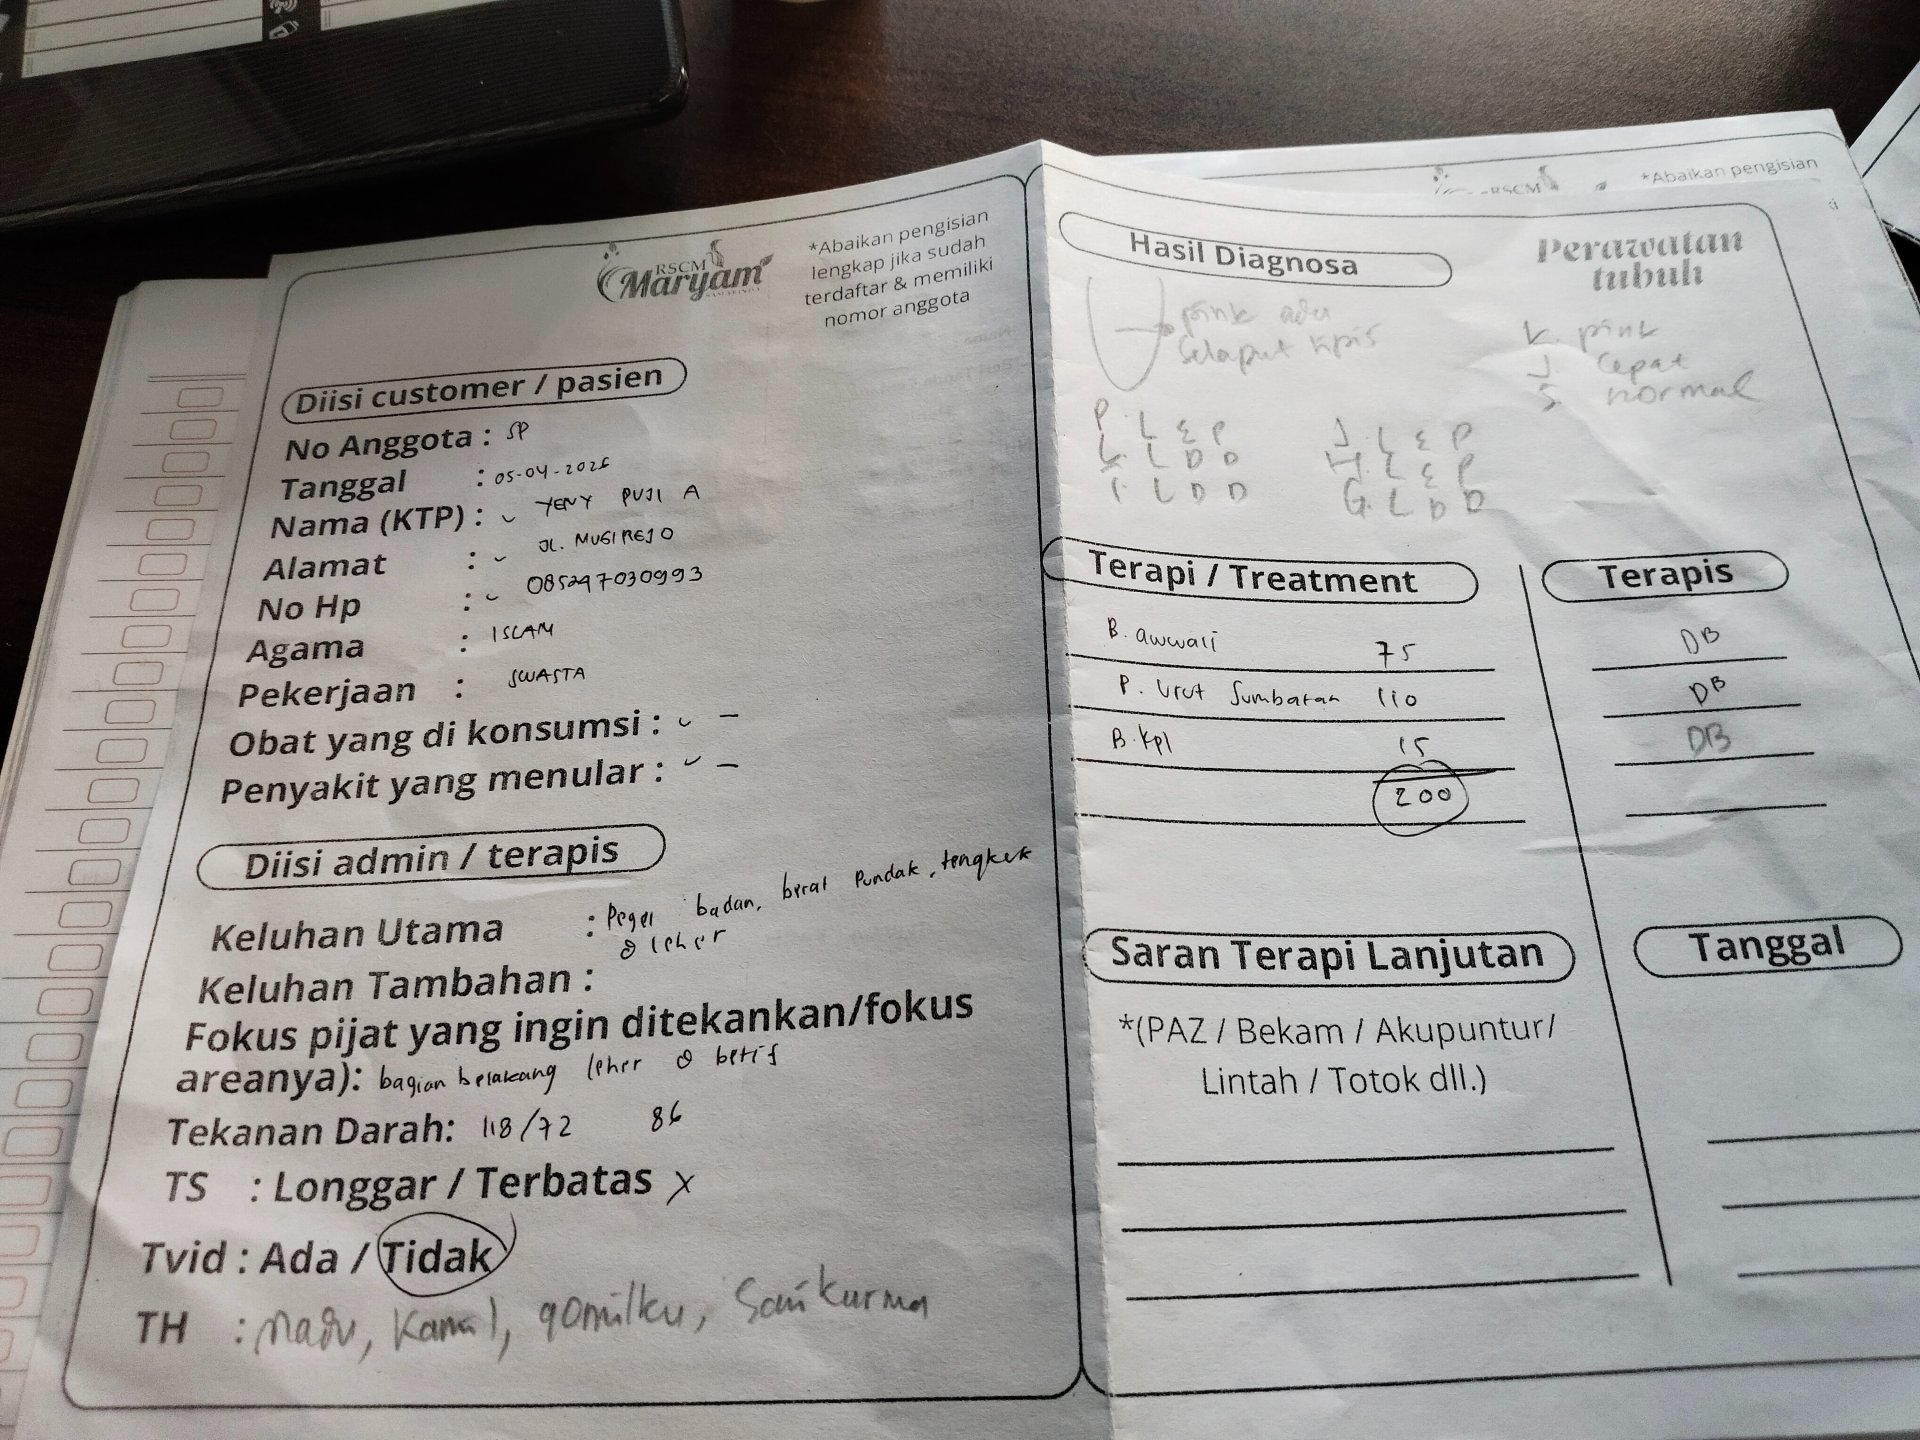 RSCM
Maryam
*Abaikan pengisian
lengkap jika sudah
terdaftar & memiliki
nomor anggota
Diisi customer / pasien
No Anggota : SP
Tanggal : 05-04-2025
Nama (KTP) : YENY PUJI A
Alamat : JL. MUGIREJO
No Hp : 085247030993
Agama : ISLAM
Pekerjaan : SWASTA
Obat yang di konsumsi : -
Penyakit yang menular : -
Diisi admin / terapis
Keluhan Utama : Pegel badan, berat Pundak, tengkuk
& leher
Keluhan Tambahan :
Fokus pijat yang ingin ditekankan/fokus
areanya): bagian belakang leher & betis
Tekanan Darah: 118/72 86
TS : Longgar / Terbatas X
Tvid : Ada / Tidak
TH : madu, Kamil, qomilku, Sari kurma
RSCM
*Abaikan pengisian
Hasil Diagnosa
Perawatan
tubuh
pink ada
Selaput kpis
K. pink
J Cepat
S. normal
P. L E P
L. L D D
L D D
J. L E P
H. L E P
G. L D D
Terapi / Treatment
Terapis
B. awwali 75 DB
P. Urut Sumbatan 110 DB
B. Kpl 15 DB
200
Saran Terapi Lanjutan
Tanggal
*(PAZ / Bekam / Akupuntur/
Lintah / Totok dll.)